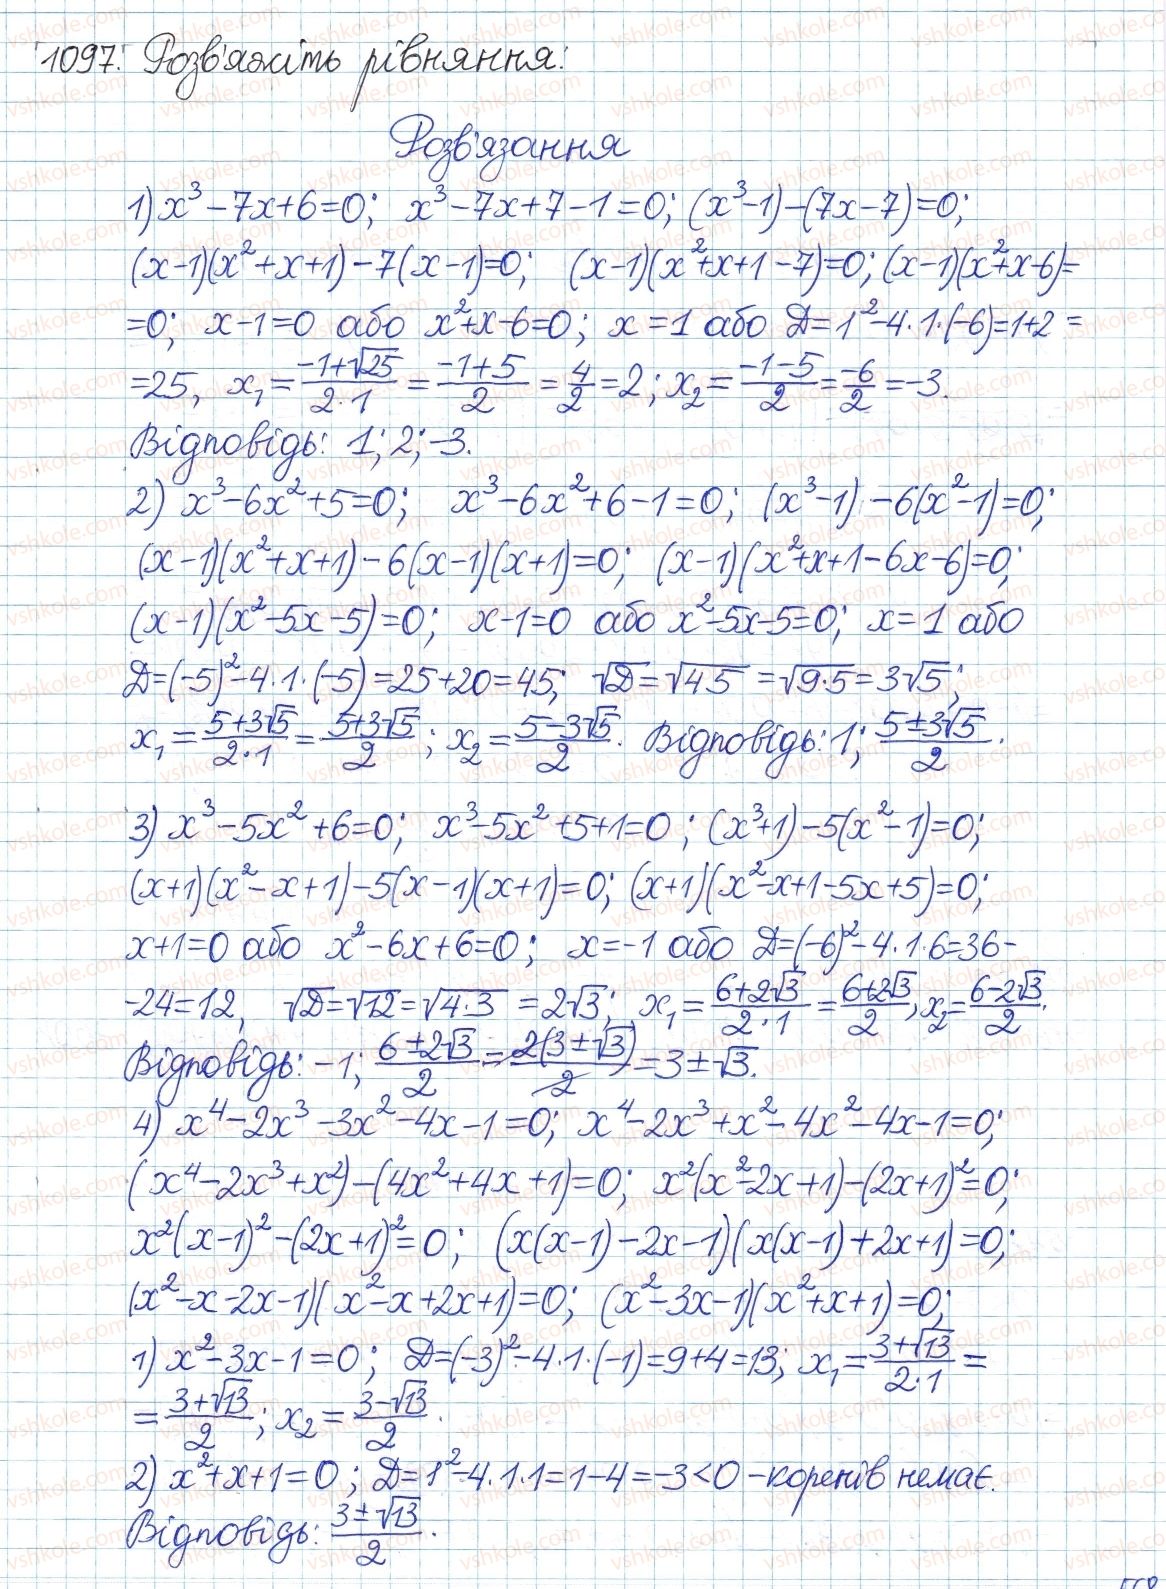 1097. Розв'яжіть рівняння:
Розв'язання
1) x³ – 7x + 6 = 0; x³ – 7x + 7 – 1 = 0; (x³ – 1) – (7x – 7) = 0;
(x – 1)(x² + x + 1) – 7(x – 1) = 0; (x – 1)(x² + x + 1 – 7) = 0; (x – 1)(x² + x – 6) =
= 0; x – 1 = 0 або x² + x – 6 = 0; x = 1 або D = 1² – 4·1·(–6) = 1 + 2 =
= 25, x₁ = (–1 + √25)/(2·1) = (–1 + 5)/2 = 4/2 = 2; x₂ = (–1 – 5)/2 = –6/2 = –3.
Відповідь: 1; 2; –3.
2) x³ – 6x² + 5 = 0; x³ – 6x² + 6 – 1 = 0; (x³ – 1) – 6(x² – 1) = 0;
(x – 1)(x² + x + 1) – 6(x – 1)(x + 1) = 0; (x – 1)(x² + x + 1 – 6x – 6) = 0;
(x – 1)(x² – 5x – 5) = 0; x – 1 = 0 або x² – 5x – 5 = 0; x = 1 або
D = (–5)² – 4·1·(–5) = 25 + 20 = 45; √D = √45 = √9·5 = 3√5;
x₁ = (5 + 3√5)/(2·1) = (5 + 3√5)/2; x₂ = (5 – 3√5)/2. Відповідь: 1; (5 ± 3√5)/2.
3) x³ – 5x² + 6 = 0; x³ – 5x² + 5 + 1 = 0; (x³ + 1) – 5(x² – 1) = 0;
(x + 1)(x² – x + 1) – 5(x – 1)(x + 1) = 0; (x + 1)(x² – x + 1 – 5x + 5) = 0;
x + 1 = 0 або x² – 6x + 6 = 0; x = –1 або D = (–6)² – 4·1·6 = 36 –
– 24 = 12, √D = √12 = √4·3 = 2√3; x₁ = (6 + 2√3)/(2·1) = (6 + 2√3)/2, x₂ = (6 – 2√3)/2.
Відповідь: –1; (6 ± 2√3)/2 = 2(3 ± √3)/2 = 3 ± √3.
4) x⁴ – 2x³ – 3x² – 4x – 1 = 0; x⁴ – 2x³ + x² – 4x² – 4x – 1 = 0;
(x⁴ – 2x³ + x²) – (4x² + 4x + 1) = 0; x²(x² – 2x + 1) – (2x + 1)² = 0;
x²(x – 1)² – (2x + 1)² = 0; (x(x – 1) – 2x – 1)(x(x – 1) + 2x + 1) = 0;
(x² – x – 2x – 1)(x² – x + 2x + 1) = 0; (x² – 3x – 1)(x² + x + 1) = 0;
1) x² – 3x – 1 = 0; D = (–3)² – 4·1·(–1) = 9 + 4 = 13; x₁ = (3 + √13)/(2·1) =
= (3 + √13)/2; x₂ = (3 – √13)/2.
2) x² + x + 1 = 0; D = 1² – 4·1·1 = 1 – 4 = –3 < 0 – коренів немає.
Відповідь: (3 ± √13)/2.